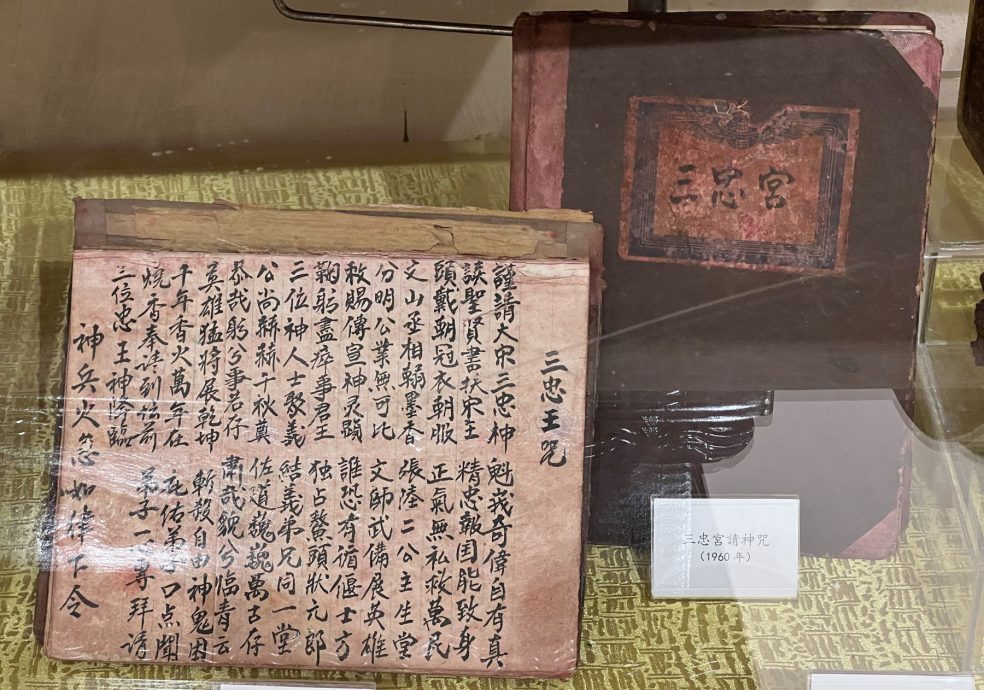 三忠宮
三忠王咒
謹請大宋三忠神 魁峩奇偉自有真
談聖賢書扶宋主 精忠報国能致身
頭戴朝冠衣朝服 正氣無私救萬民
文山丞相翰墨香 張陸二公主生堂
分明公業無可比 文師武備展英雄
敕賜傳宣神灵顕 誰恐有循偃士方
鞠躬盡瘁事君王 独占鰲頭狀元郎
三位神人士聚義 結義弟兄同一堂
公尚赫赫千秋奠 佐道巍巍萬古仔
恭哉躬兮事若仔 肅武貌兮臨青云
英雄猛將展乾坤 斬殺自由神鬼困
千年香火萬年在 庇佑弟子口点開
燒香奉請到 前 弟子一心專拜請
三位忠王神降臨
神兵火急如律下令
三忠宮請神咒
(1960 年)